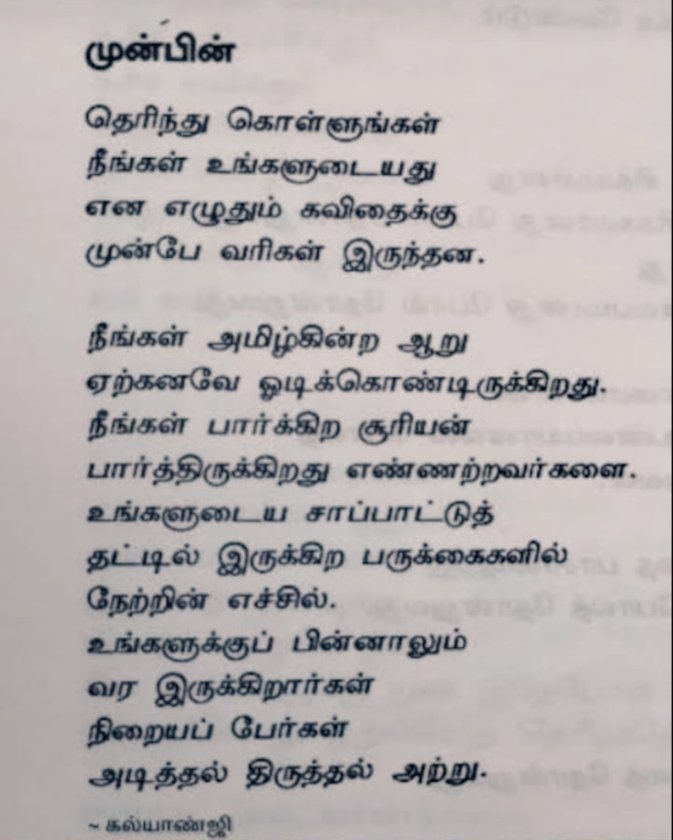 முன்பின்
தெரிந்து கொள்ளுங்கள்
நீங்கள் உங்களுடையது
என எழுதும் கவிதைக்கு
முன்பே வரிகள் இருந்தன.
நீங்கள் அமிழ்கின்ற ஆறு
ஏற்கனவே ஓடிக்கொண்டிருக்கிறது.
நீங்கள் பார்க்கிற சூரியன்
பார்த்திருக்கிறது எண்ணற்றவர்களை.
உங்களுடைய சாப்பாட்டுத்
தட்டில் இருக்கிற பருக்கைகளில்
நேற்றின் எச்சில்.
உங்களுக்குப் பின்னாலும்
வர இருக்கிறார்கள்
நிறையப் பேர்கள்
அடித்தல் திருத்தல் அற்று.
~ கல்யாண்ஜி